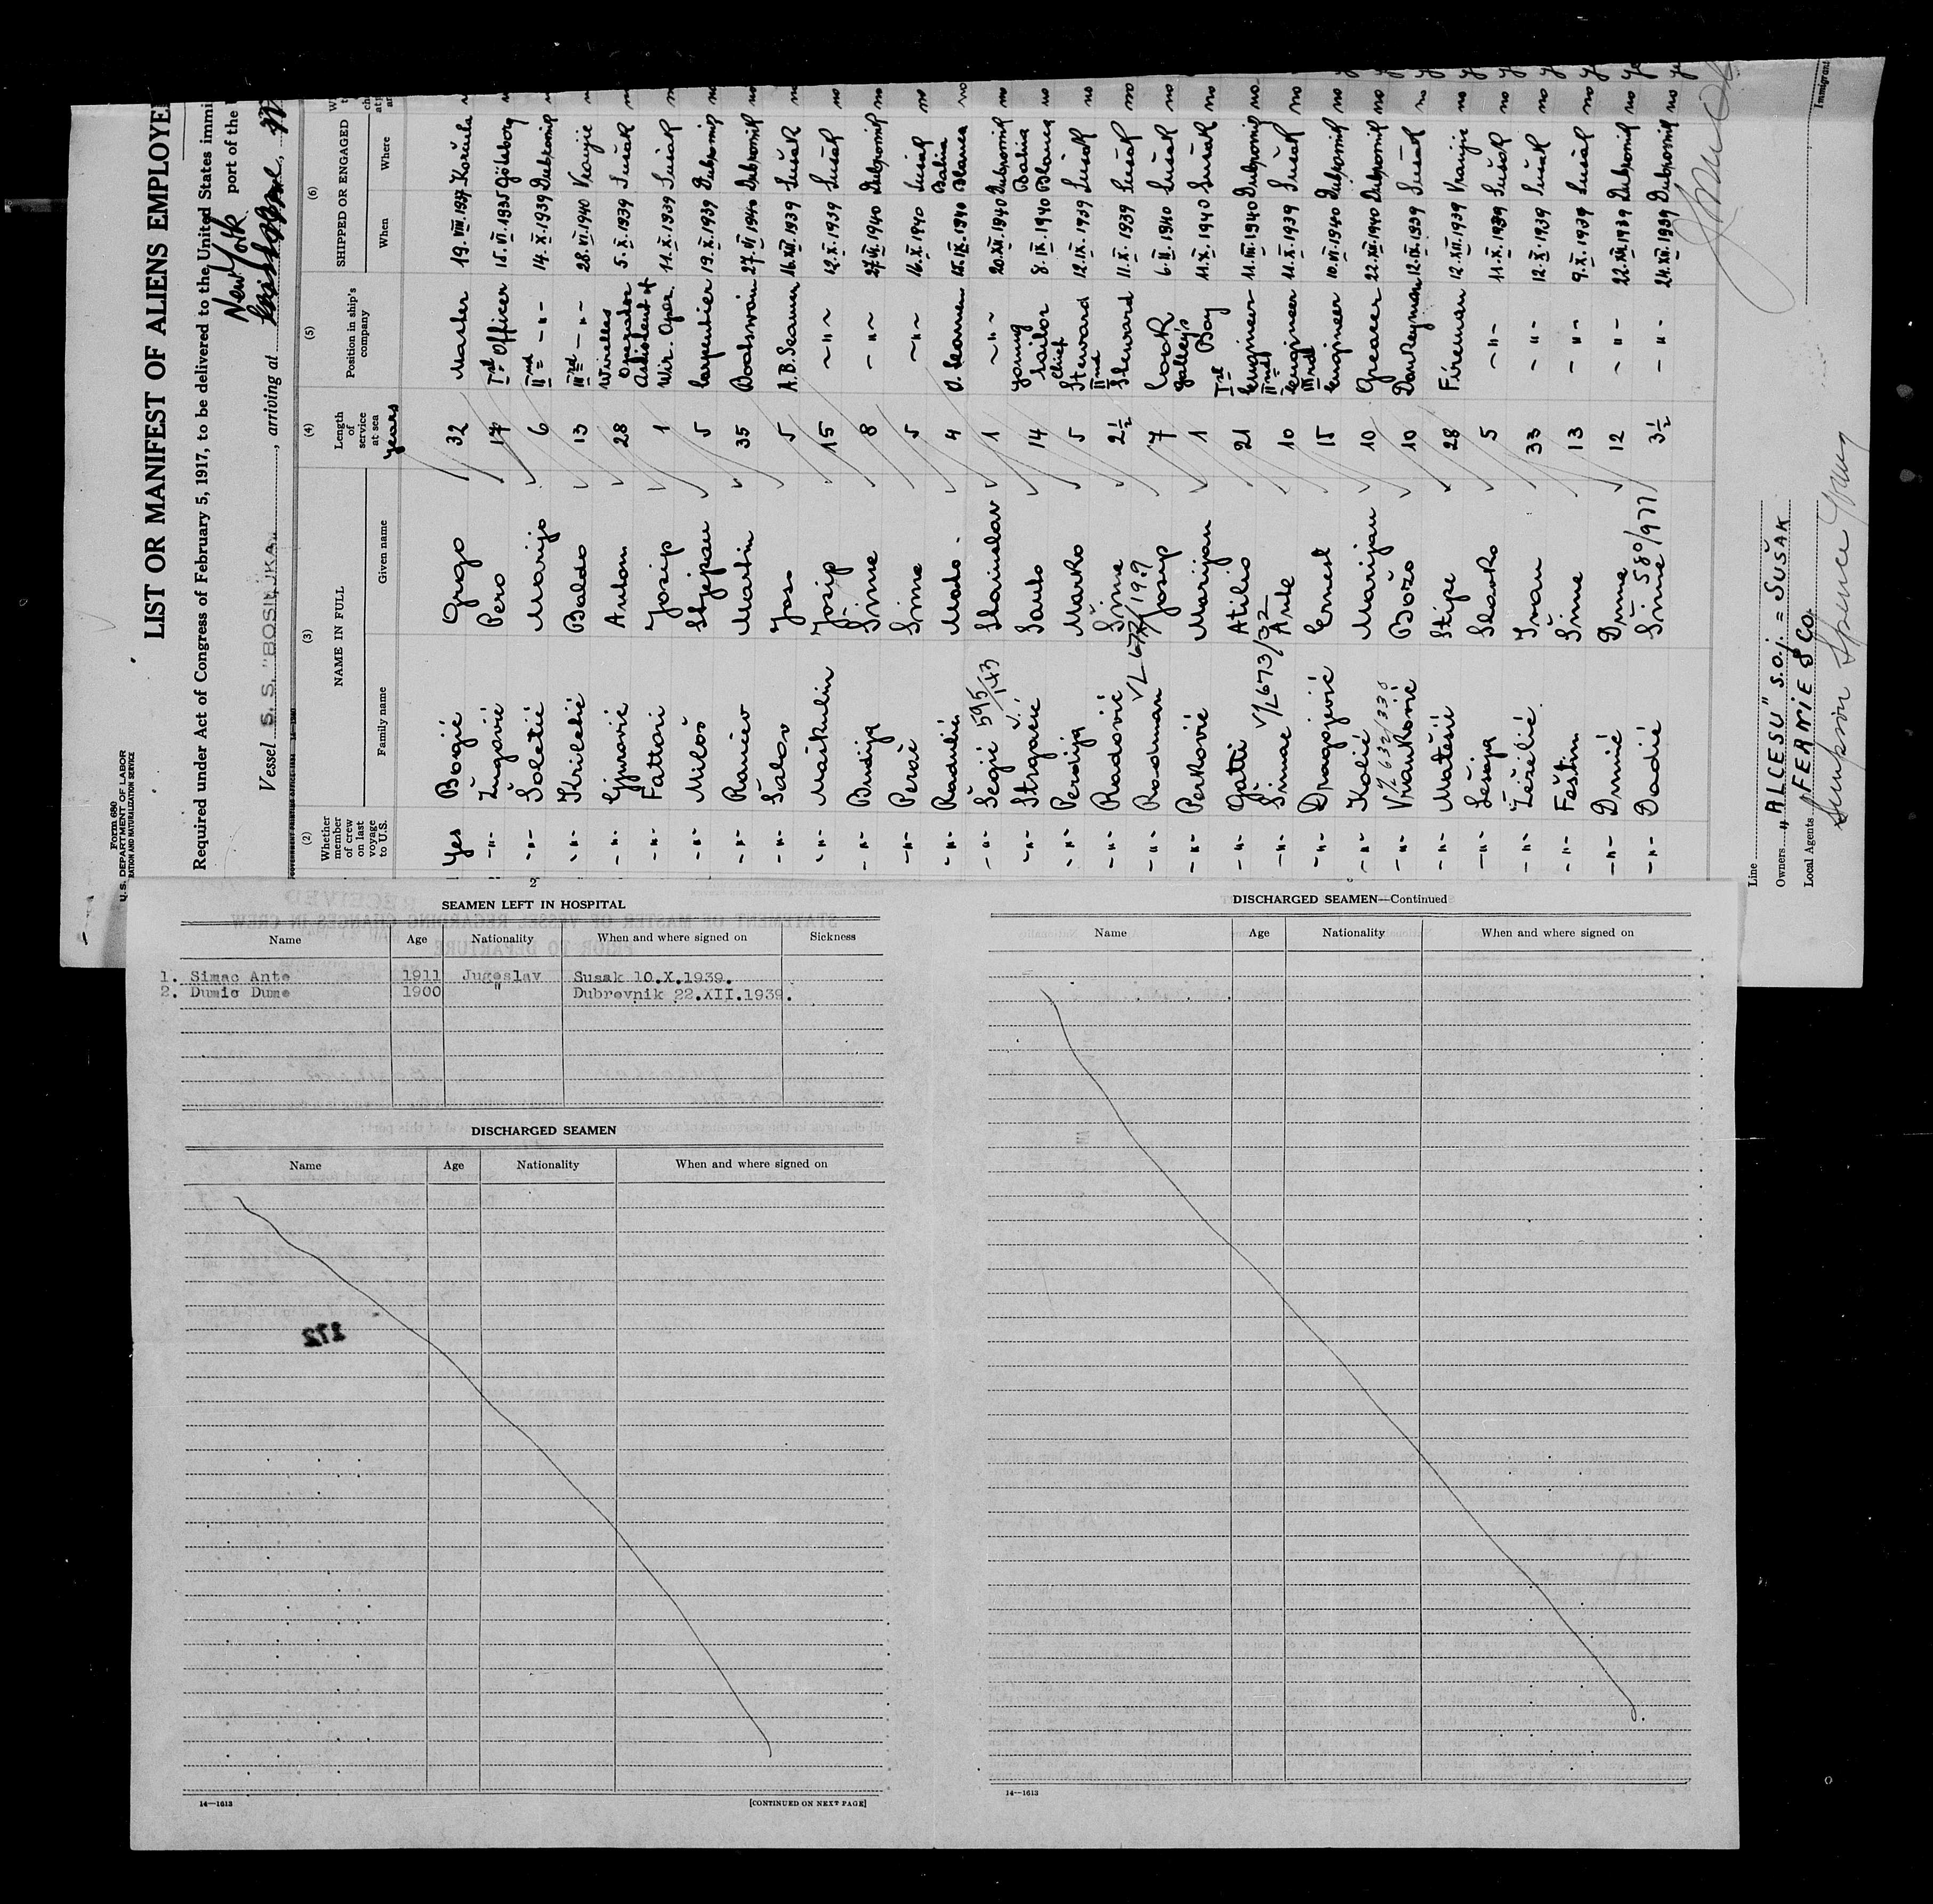 Form 680
U. S. DEPARTMENT OF LABOR
RATION AND NATURALIZATION SERVICE
LIST OR MANIFEST OF ALIENS EMPLOYE
Required under Act of Congress of February 5, 1917, to be delivered to the United States immi
New York
port of the
Vessel S. S. "BOSILJKA", arriving at
(2) (3) (4) (5) (6)
Whether member of crew on last voyage to U.S.
NAME IN FULL
Family name Given name
Length of service at sea
years
Position in ship's company
SHIPPED OR ENGAGED
When Where
Yes Bogić Grgo 32 Master 19.VIII.1937 Korčula
-"- Žugović Pero 17 Ist Officer 15.VI.1935 Göteborg
-"- Šoletić Marijo 6 IInd -"- 14.X.1939 Dubrovnik
-"- Kriletić Baldo 13 IIIrd -"- 28.VI.1940 Vranjic
-"- Gjurović Antun 28 Wireless Operator 5.X.1939 Sušak
-"- Fattori Josip 1 Asistent of Wir. Oper. 11.X.1939 Sušak
-"- Miloš Stjepan 5 Carpentier 19.X.1939 Dubrovnik
-"- Martin 35 Boatswain 27.VI.1940 Dubrovnik no
-"- Šalov Joso 5 A.B. Seaman 16.XII.1939 Sušak no
-"- Maškulin Josip 15 ~"~ 12.X.1939 Sušak no
-"- Budija Šime 8 -"~ 27.VI.1940 Dubrovnik no
-"- Perač Šime 5 ~"~ 16.X.1940 Sušak no
-"- Radulić Mato 4 O. Seaman 15.IX.1940 Bahia Blanca no
-"- Šegić 595/143 Stanislav 1 ~"~ 20.XII.1940 Dubrovnik no
-"- Strgačić Santo 14 young sailor 8.IX.1940 Bahia Blanca no
-"- Perdija Marko 5 Chief Steward 12.IX.1939 Sušak no
-"- Radović Šime 2½ IInd Steward 11.X.1939 Sušak no
-"- Rodman Josip 7 Cook 6.II.1940 Sušak no
-"- Perković Marijan 1 galley's Boy 11.X.1940 Sušak no
-"- Gatti Atilio 21 Ist Engineer 11.III.1940 Dubrovnik no
-"- Šimac V/L673/32 Ante 10 IInd Engineer 11.X.1939 Sušak no
-"- Dragojević Ernest 15 IIIrd Engineer 10.VI.1940 Dubrovnik no
-"- Kolić Marijan 10 Greaser 22.XII.1940 Dubrovnik no
-"- Vranković Božo 10 Donkeyman 12.IX.1939 Sušak no
-"- Matešić Stipe 28 Fireman 12.XII.1939 Vranjic no
-"- Slavko 5 ~"- 11.X.1939 Sušak no
-"- Ivan 33 -"- 12.X.1939 Sušak no
-"- Feštin Šime 13 -"- 9.X.1939 Sušak no
-"- Dumić Dume 12 ~"- 22.XII.1939 Dubrovnik no
-"- Dadić Šime 580/977 3½ -"- 24.XII.1939 Dubrovnik no
Line
Owners "ALCESU" s.o.j. = SUŠAK
Local Agents FERNIE & Co.
Simpson Spence Young
Immigrant
2
SEAMEN LEFT IN HOSPITAL
Name Age Nationality When and where signed on Sickness
1. Simac Ante 1911 Jugoslav Susak 10.X.1939.
2. Dumic Dume 1900 " Dubrovnik 22.XII.1939.
DISCHARGED SEAMEN
Name Age Nationality When and where signed on
172
14—1613 [CONTINUED ON NEXT PAGE]
DISCHARGED SEAMEN—Continued
Name Age Nationality When and where signed on
14—1613